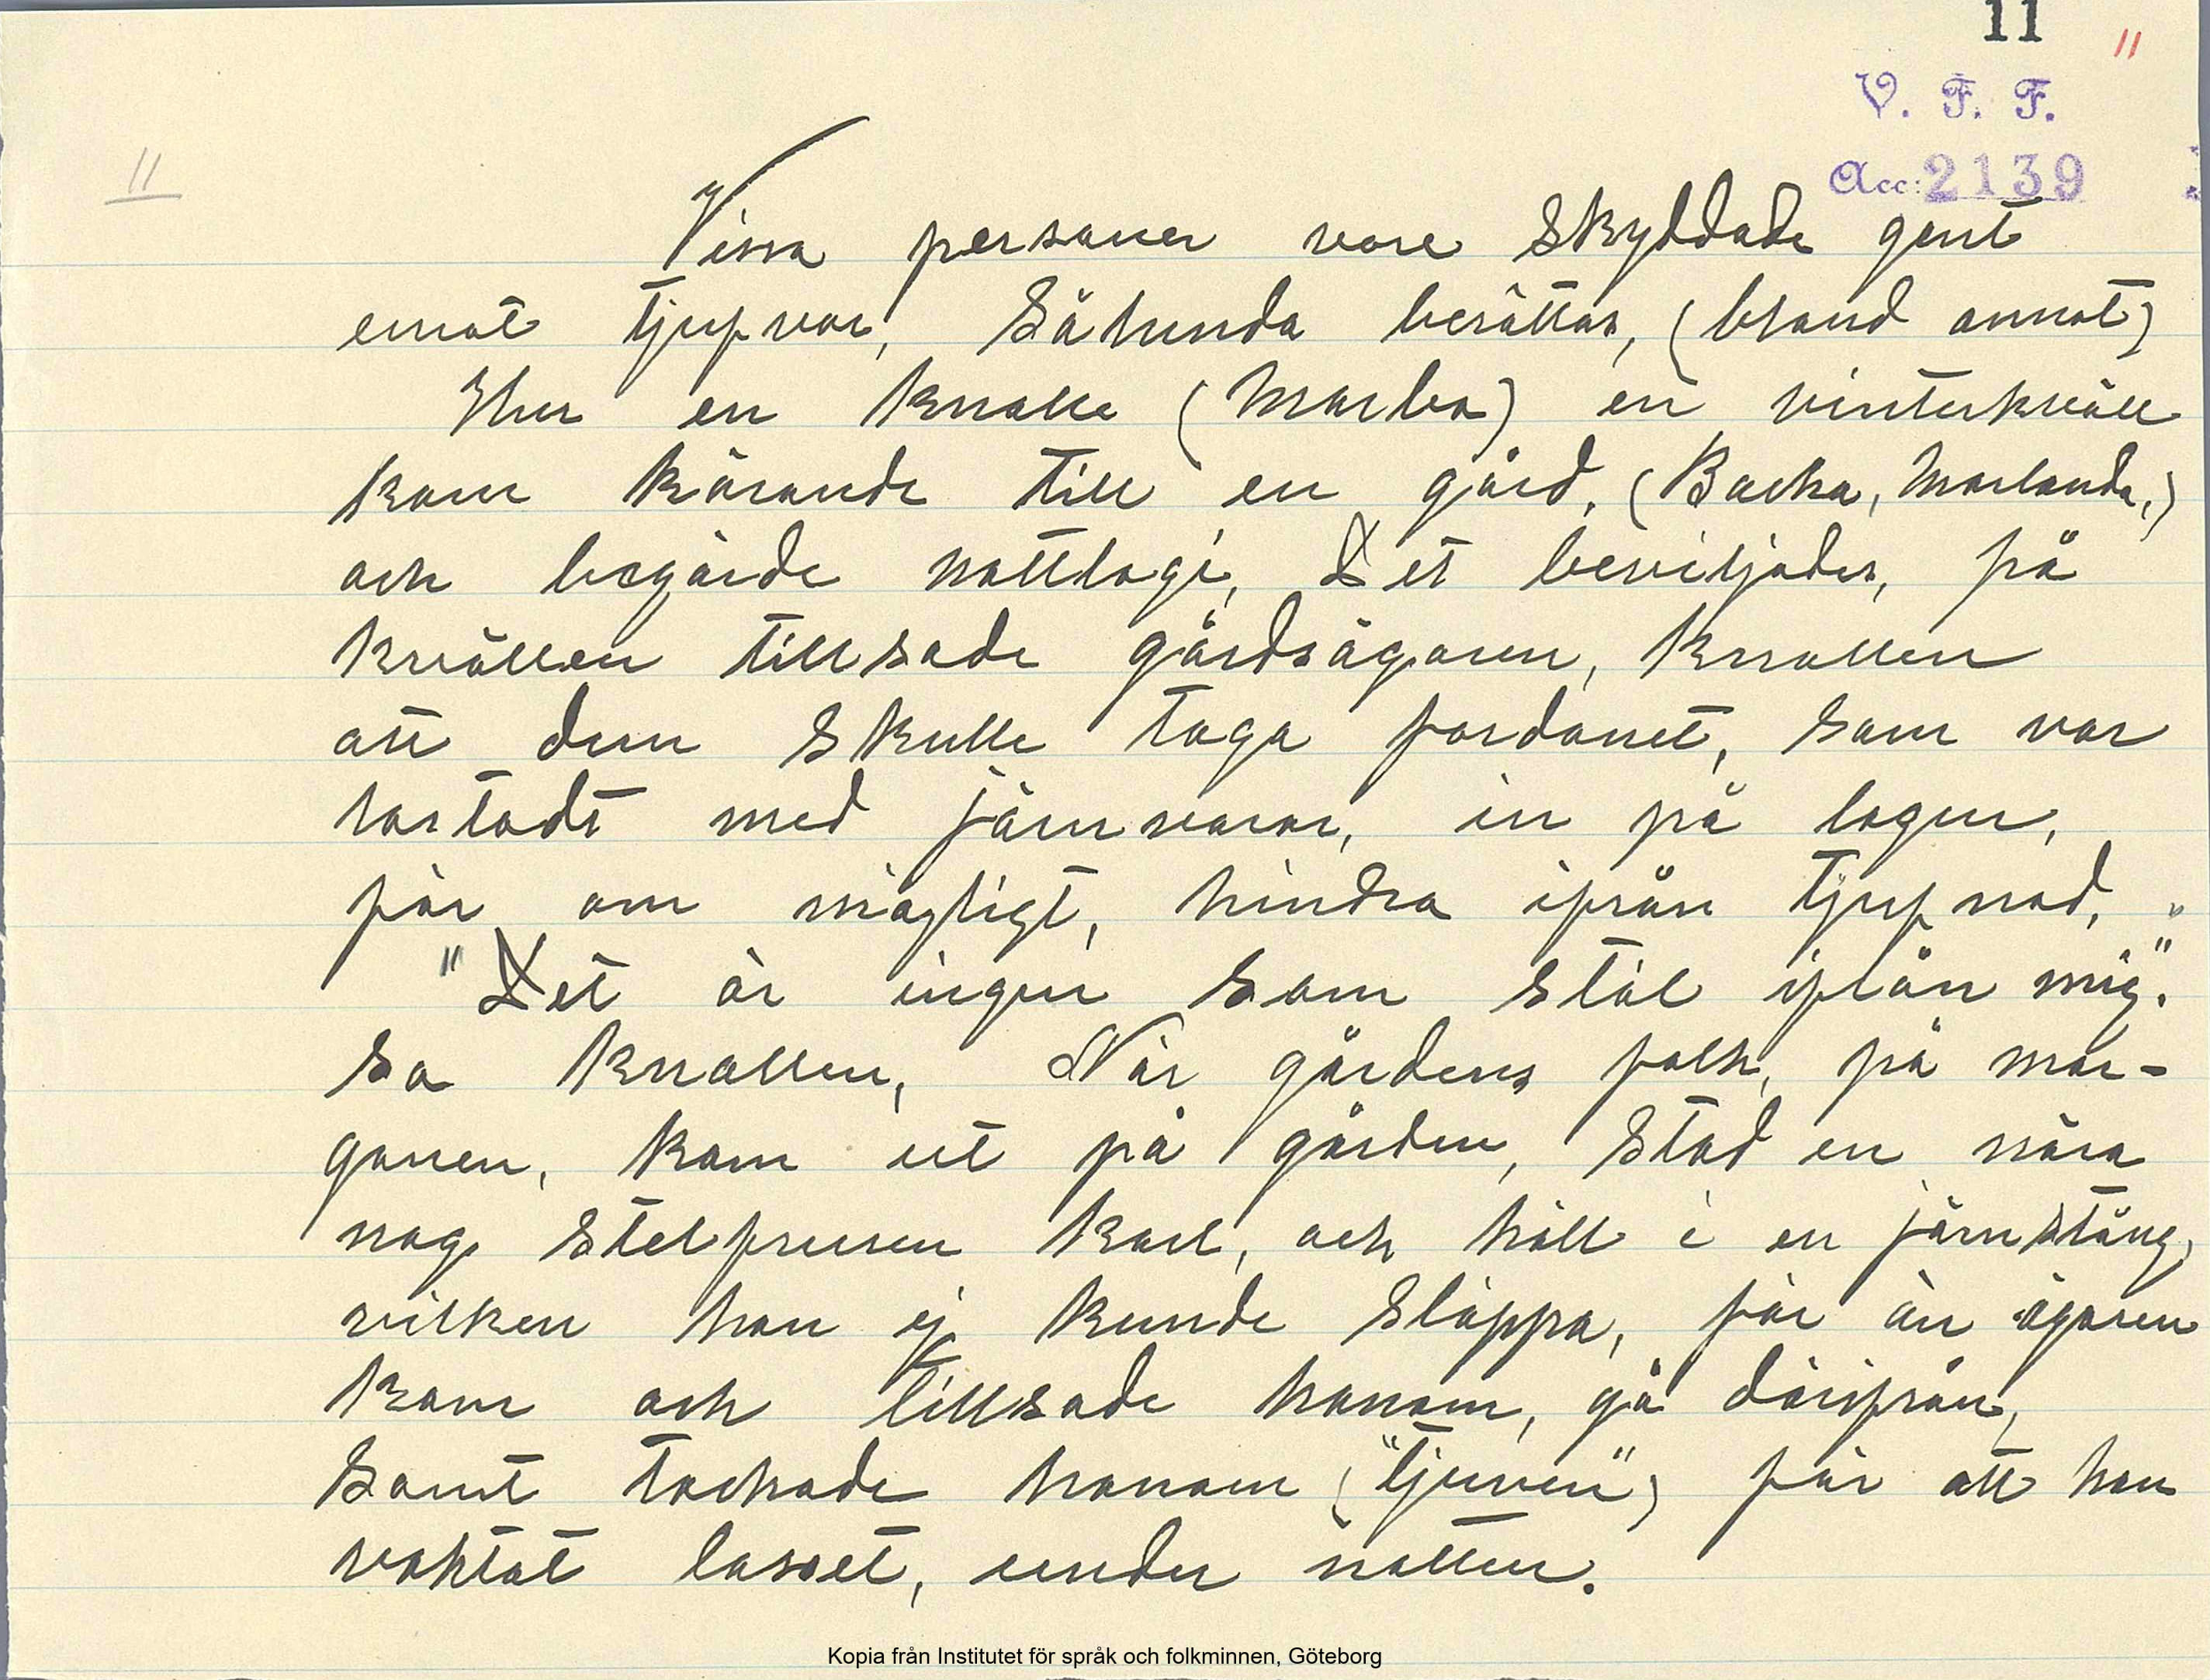 11 11
V. F. F.
11
Acc: 2139
Vissa personer vore skyddade gent
emot tjufvar, Sålunda berättas, (bland annat)
Hur en knalle (Marbo) en vinterkväll
kom körande till en gård, (Backa, Morlanda,)
och begärde nattlogi, Det beviljades, på
kvällen tillsade gårdsägaren, knallen
att dem skulle taga fordonet, som var
lastadt med järnvaror, in på logen,
för om möjligt, hindra ifrån tjufnad, "
"Det är ingen som stäl ifrån mig."
sa knallen, När gårdens folk, på mor-
gonen, kom ut på gården, stod en nära
nog stelfrusen karl, och höll i en järnstång,
vilken han ej kunde släppa, för än ägaren
kom och tillsade honom, gå därifrån,
samt tackade honom ("tjuven") för att han
vaktat lasset, under natten.
Kopia från Institutet för språk och folkminnen, Göteborg